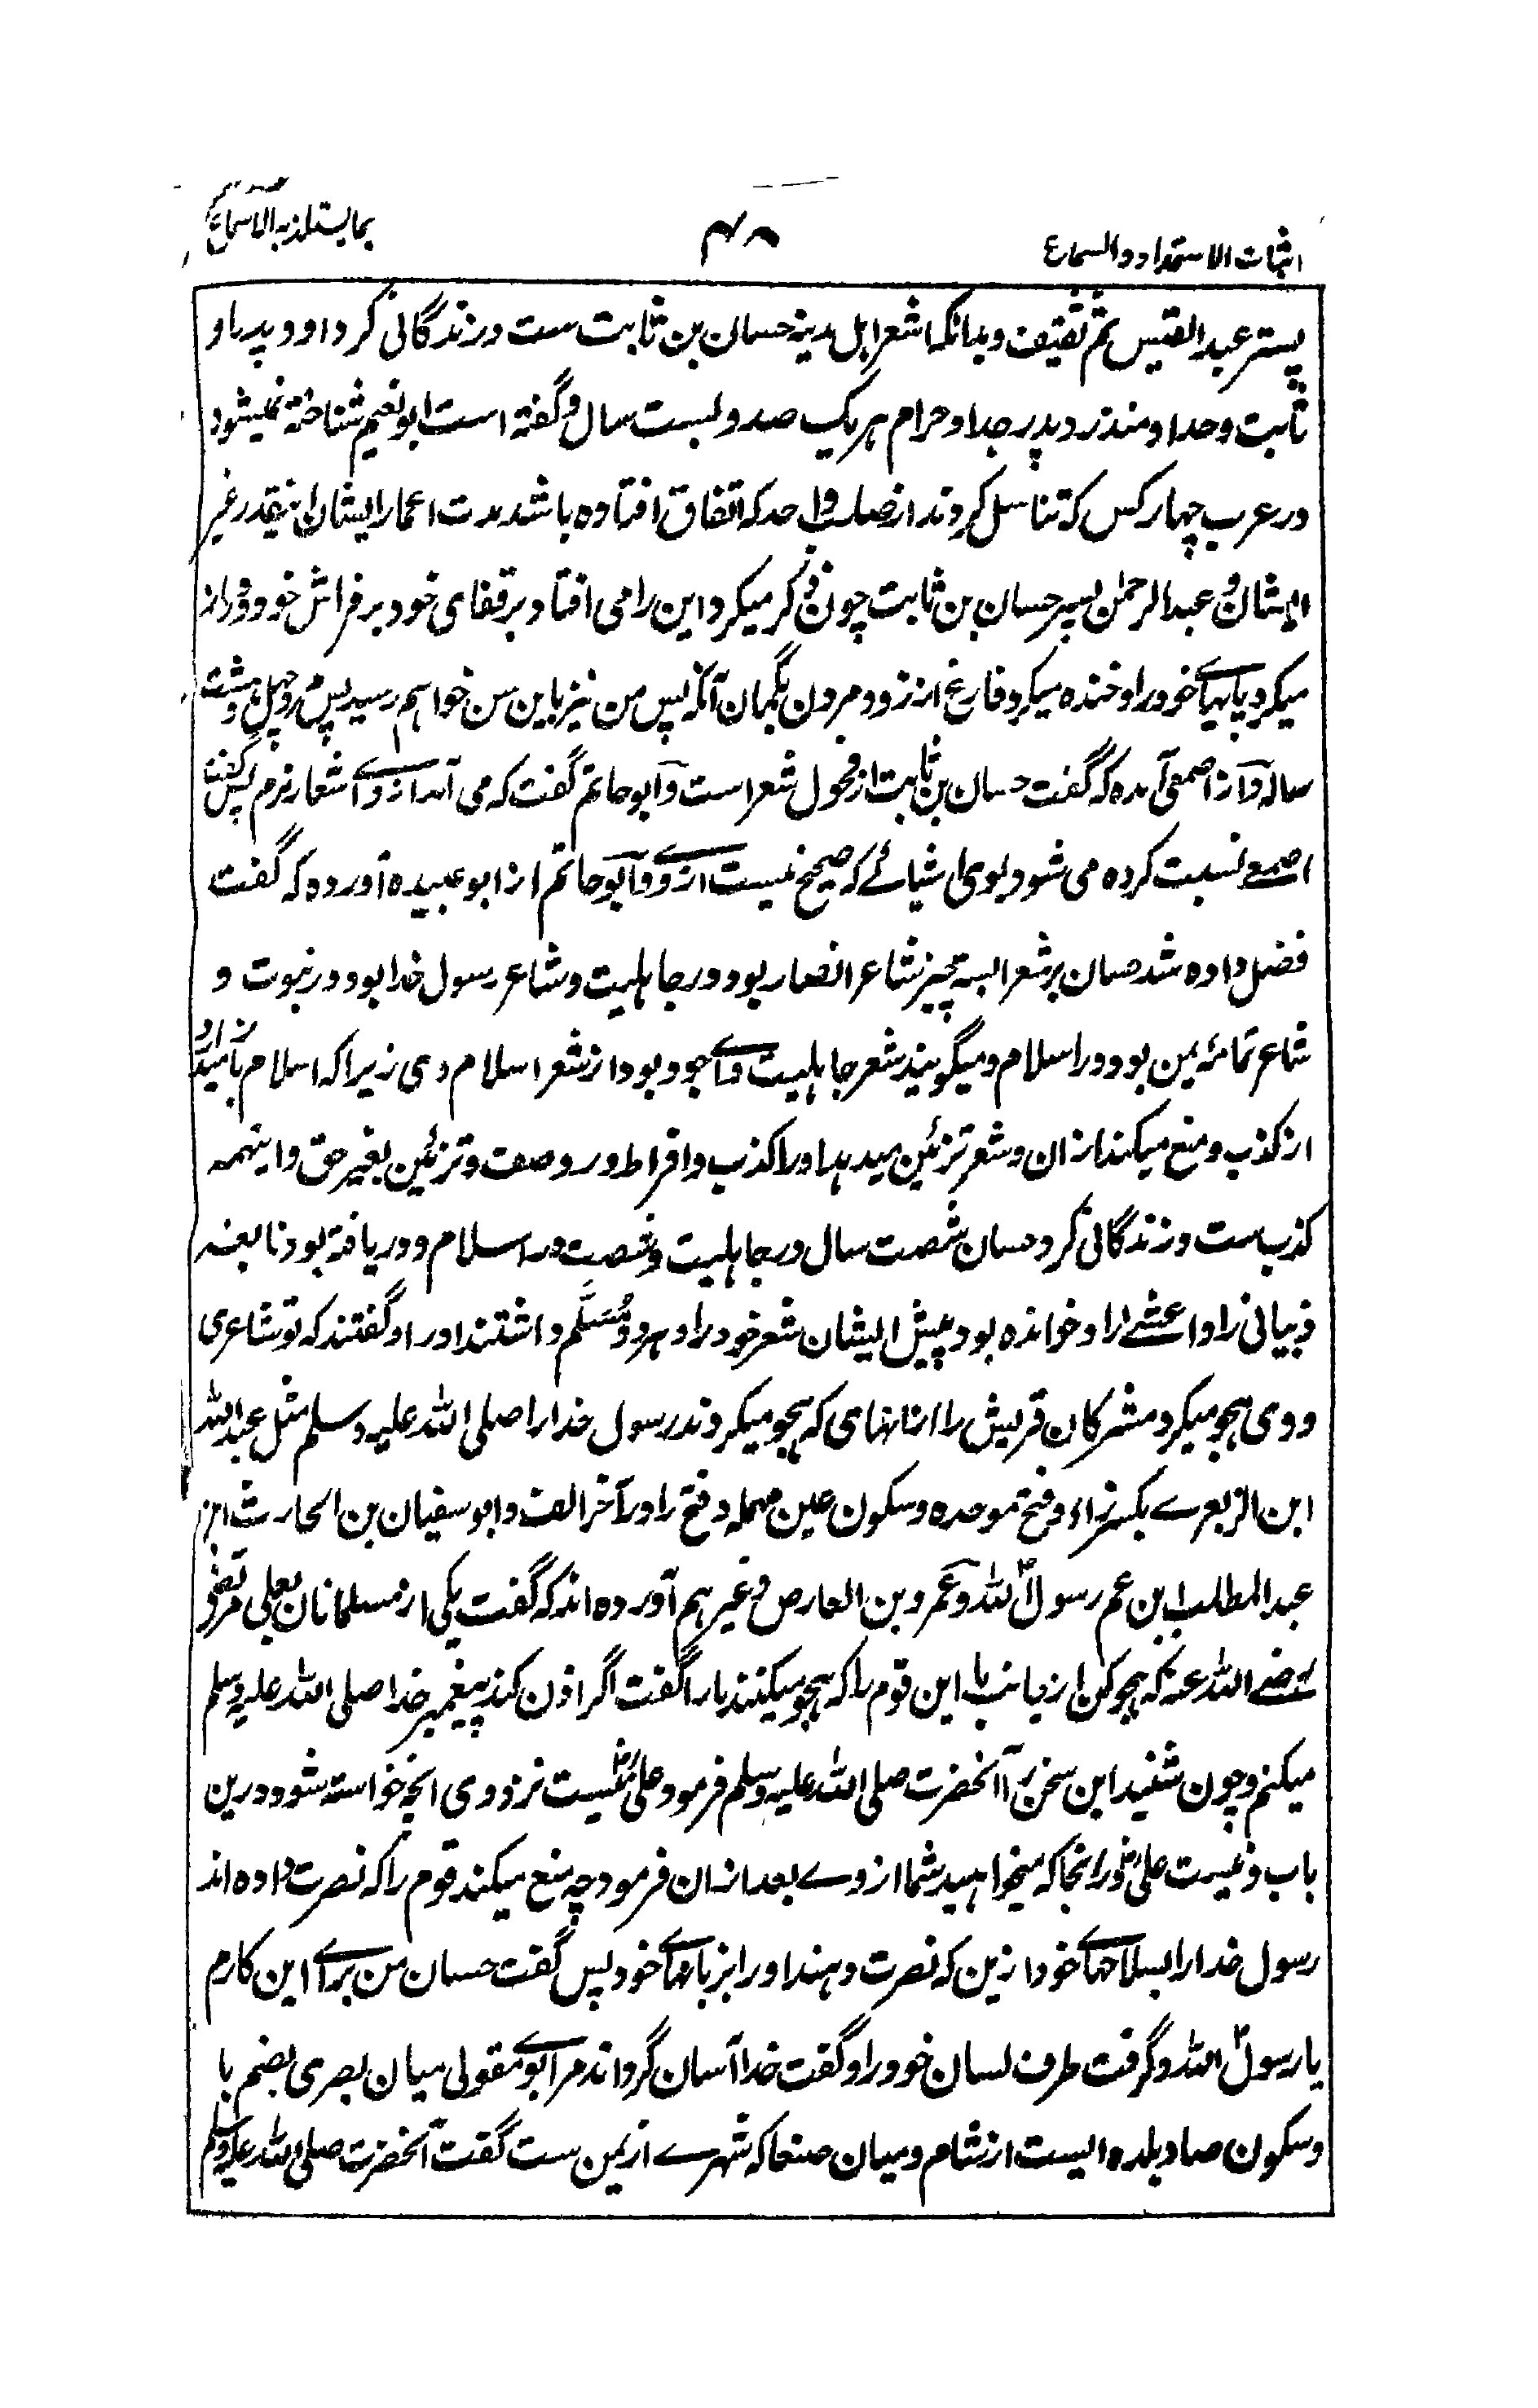 اثبات الاستمداد والسماع
۴۸
بما یستلذ به الاسماع
پستر عبد القیس ثم ثقیف و بدانکه اشعر اهل مدینه حسان بن ثابت ست و زندگانی کرد او و پدر او
ثابت و جد او منذر و پدر جد او حرام هر یک صد و بست سال و گفته است ابو نعیم شناخته نمیشود
در عرب چهار کس که تناسل کردند از صلب واحد که اتفاق افتاده باشد مدت اعمار ایشان اینقدر غیر
ایشان و عبد الرحمن پسر حسان بن ثابت چون ذکر میکرد این را می افتاد بر قفای خود بر فراش خود و دراز
میکرد پایهای خود را و خنده میکرد فارغ از زود مردن بگمان آنکه پس من نیز باین سن خواهم رسید پس مرد چهل و هشت
ساله و از اصمعی آمده که گفت حسان بن ثابت از فحول شعراست و ابو حاتم گفت که می آمد از وے اشعار نرم پس گفت
اصمعے نسبت کرده می شود بوی اشیائے که صحیح نیست از وے و ابو حاتم از ابو عبیده آورده که گفت
فضل داده شد حسان بر شعرا بسه چیز شاعر انصار بود در جاهلیت و شاعر رسول خدا بود در نبوت و
شاعر تمامئه یمن بود در اسلام و میگویند شعر جاهلیت وے اجود بود از شعر اسلام وی زیرا که اسلام باز میدارد
از کذب و منع میکند ازان و شعر تزئین میدهد او را کذب و افراط در وصف و تزئین بغیر حق و اینهمه
کذب ست و زندگانی کرد حسان شصت سال در جاهلیت و شصت در اسلام و دریافته بود نابغه
ذبیانی را و اعشے را و خوانده بود پیش ایشان شعر خود را و هر دو مُسَلَّم داشتند او را و گفتند که تو شاعری
و وی هجو میکرد مشرکان قریش را از انهای که هجو میکردند رسول خدا را صلی الله علیه وسلم مثل عبد الله
ابن الزبعرے بکسر زاء و فتح موحده و سکون عین مهمله و فتح را در آخر الف و ابو سفیان بن الحارث ابن
عبد المطلب ابن عم رسول الله و عمرو بن العاص و غیر هم آورده اند که گفت یکی از مسلمانان بعلی مرتضی
رضے الله عنه که هجو کن از جانب ما این قوم را که هجو میکنند ما را گفت اگر اذن کند پیغمبر خدا صلی الله علیه وسلم
میکنم و چون شنید این سخن را آنحضرت صلی الله علیه وسلم فرمود علی نیست نزد وی انچه خواسته شود درین
باب و نیست علی در انجا که میخواهید شما از وے بعد ازان فرمود چه منع میکند قوم را که نصرت داده اند
رسول خدا را بسلاحهاے خود ازین که نصرت دهند او را بزبانهاے خود پس گفت حسان من براے این کارم
یا رسول الله و گرفت طرف لسان خود را و گفت خدا آسان گرداند مرا بوے مقولی میان بصری بضم با
و سکون صاد بلده ایست از شام و میان صنعا که شهرے از یمن ست گفت آنحضرت صلی الله علیه وسلم